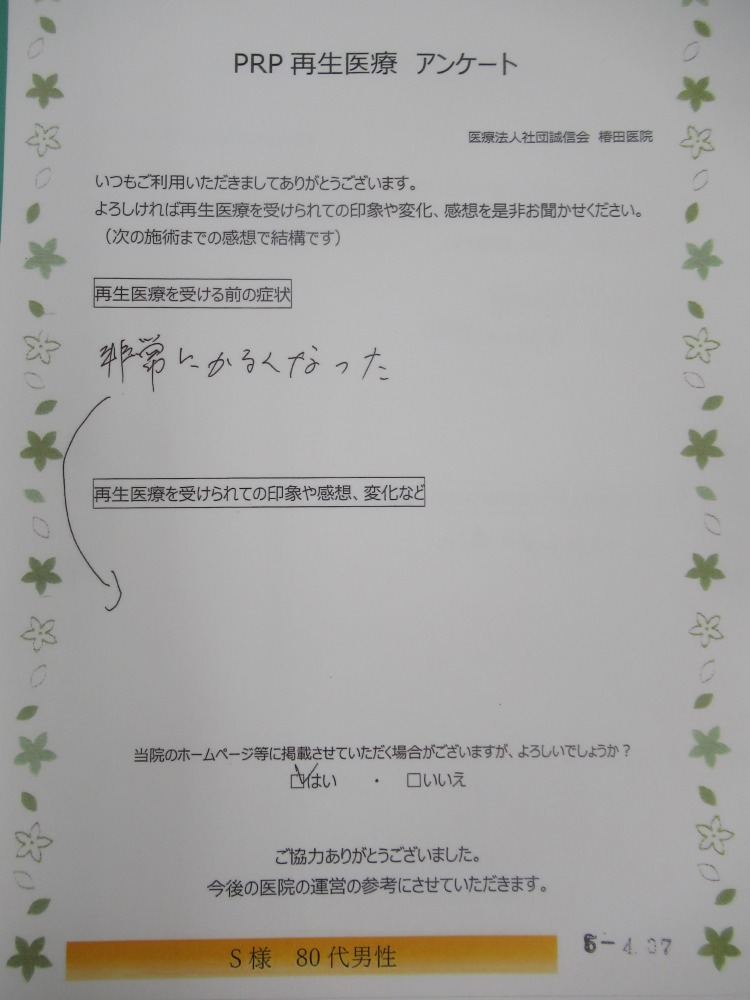 PRP 再生医療 アンケート
医療法人社団誠信会 椿田医院
いつもご利用いただきましてありがとうございます。
よろしければ再生医療を受けられての印象や変化、感想を是非お聞かせください。
（次の施術までの感想で結構です）
再生医療を受ける前の症状
非常にかるくなった
再生医療を受けられての印象や感想、変化など
当院のホームページ等に掲載させていただく場合がございますが、よろしいでしょうか？
☑はい ・ □いいえ
ご協力ありがとうございました。
今後の医院の運営の参考にさせていただきます。
S様 80代男性
5-4.07